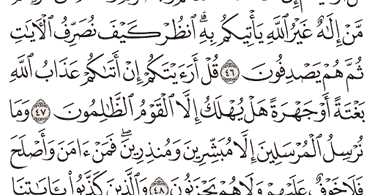 مَّنْ إِلَٰهٌ غَيْرُ ٱللَّهِ يَأْتِيكُم بِهِ ۗ ٱنظُرْ كَيْفَ نُصَرِّفُ ٱلْءَايَٰتِ
ثُمَّ هُمْ يَصْدِفُونَ ٤٦ قُلْ أَرَءَيْتَكُمْ إِنْ أَتَىٰكُمْ عَذَابُ ٱللَّهِ
بَغْتَةً أَوْ جَهْرَةً هَلْ يُهْلَكُ إِلَّا ٱلْقَوْمُ ٱلظَّٰلِمُونَ ٤٧ وَمَا
نُرْسِلُ ٱلْمُرْسَلِينَ إِلَّا مُبَشِّرِينَ وَمُنذِرِينَ ۖ فَمَنْ ءَامَنَ وَأَصْلَحَ
فَلَا خَوْفٌ عَلَيْهِمْ وَلَا هُمْ يَحْزَنُونَ ٤٨ وَٱلَّذِينَ كَذَّبُوا۟ بِـَٔايَٰتِنَا